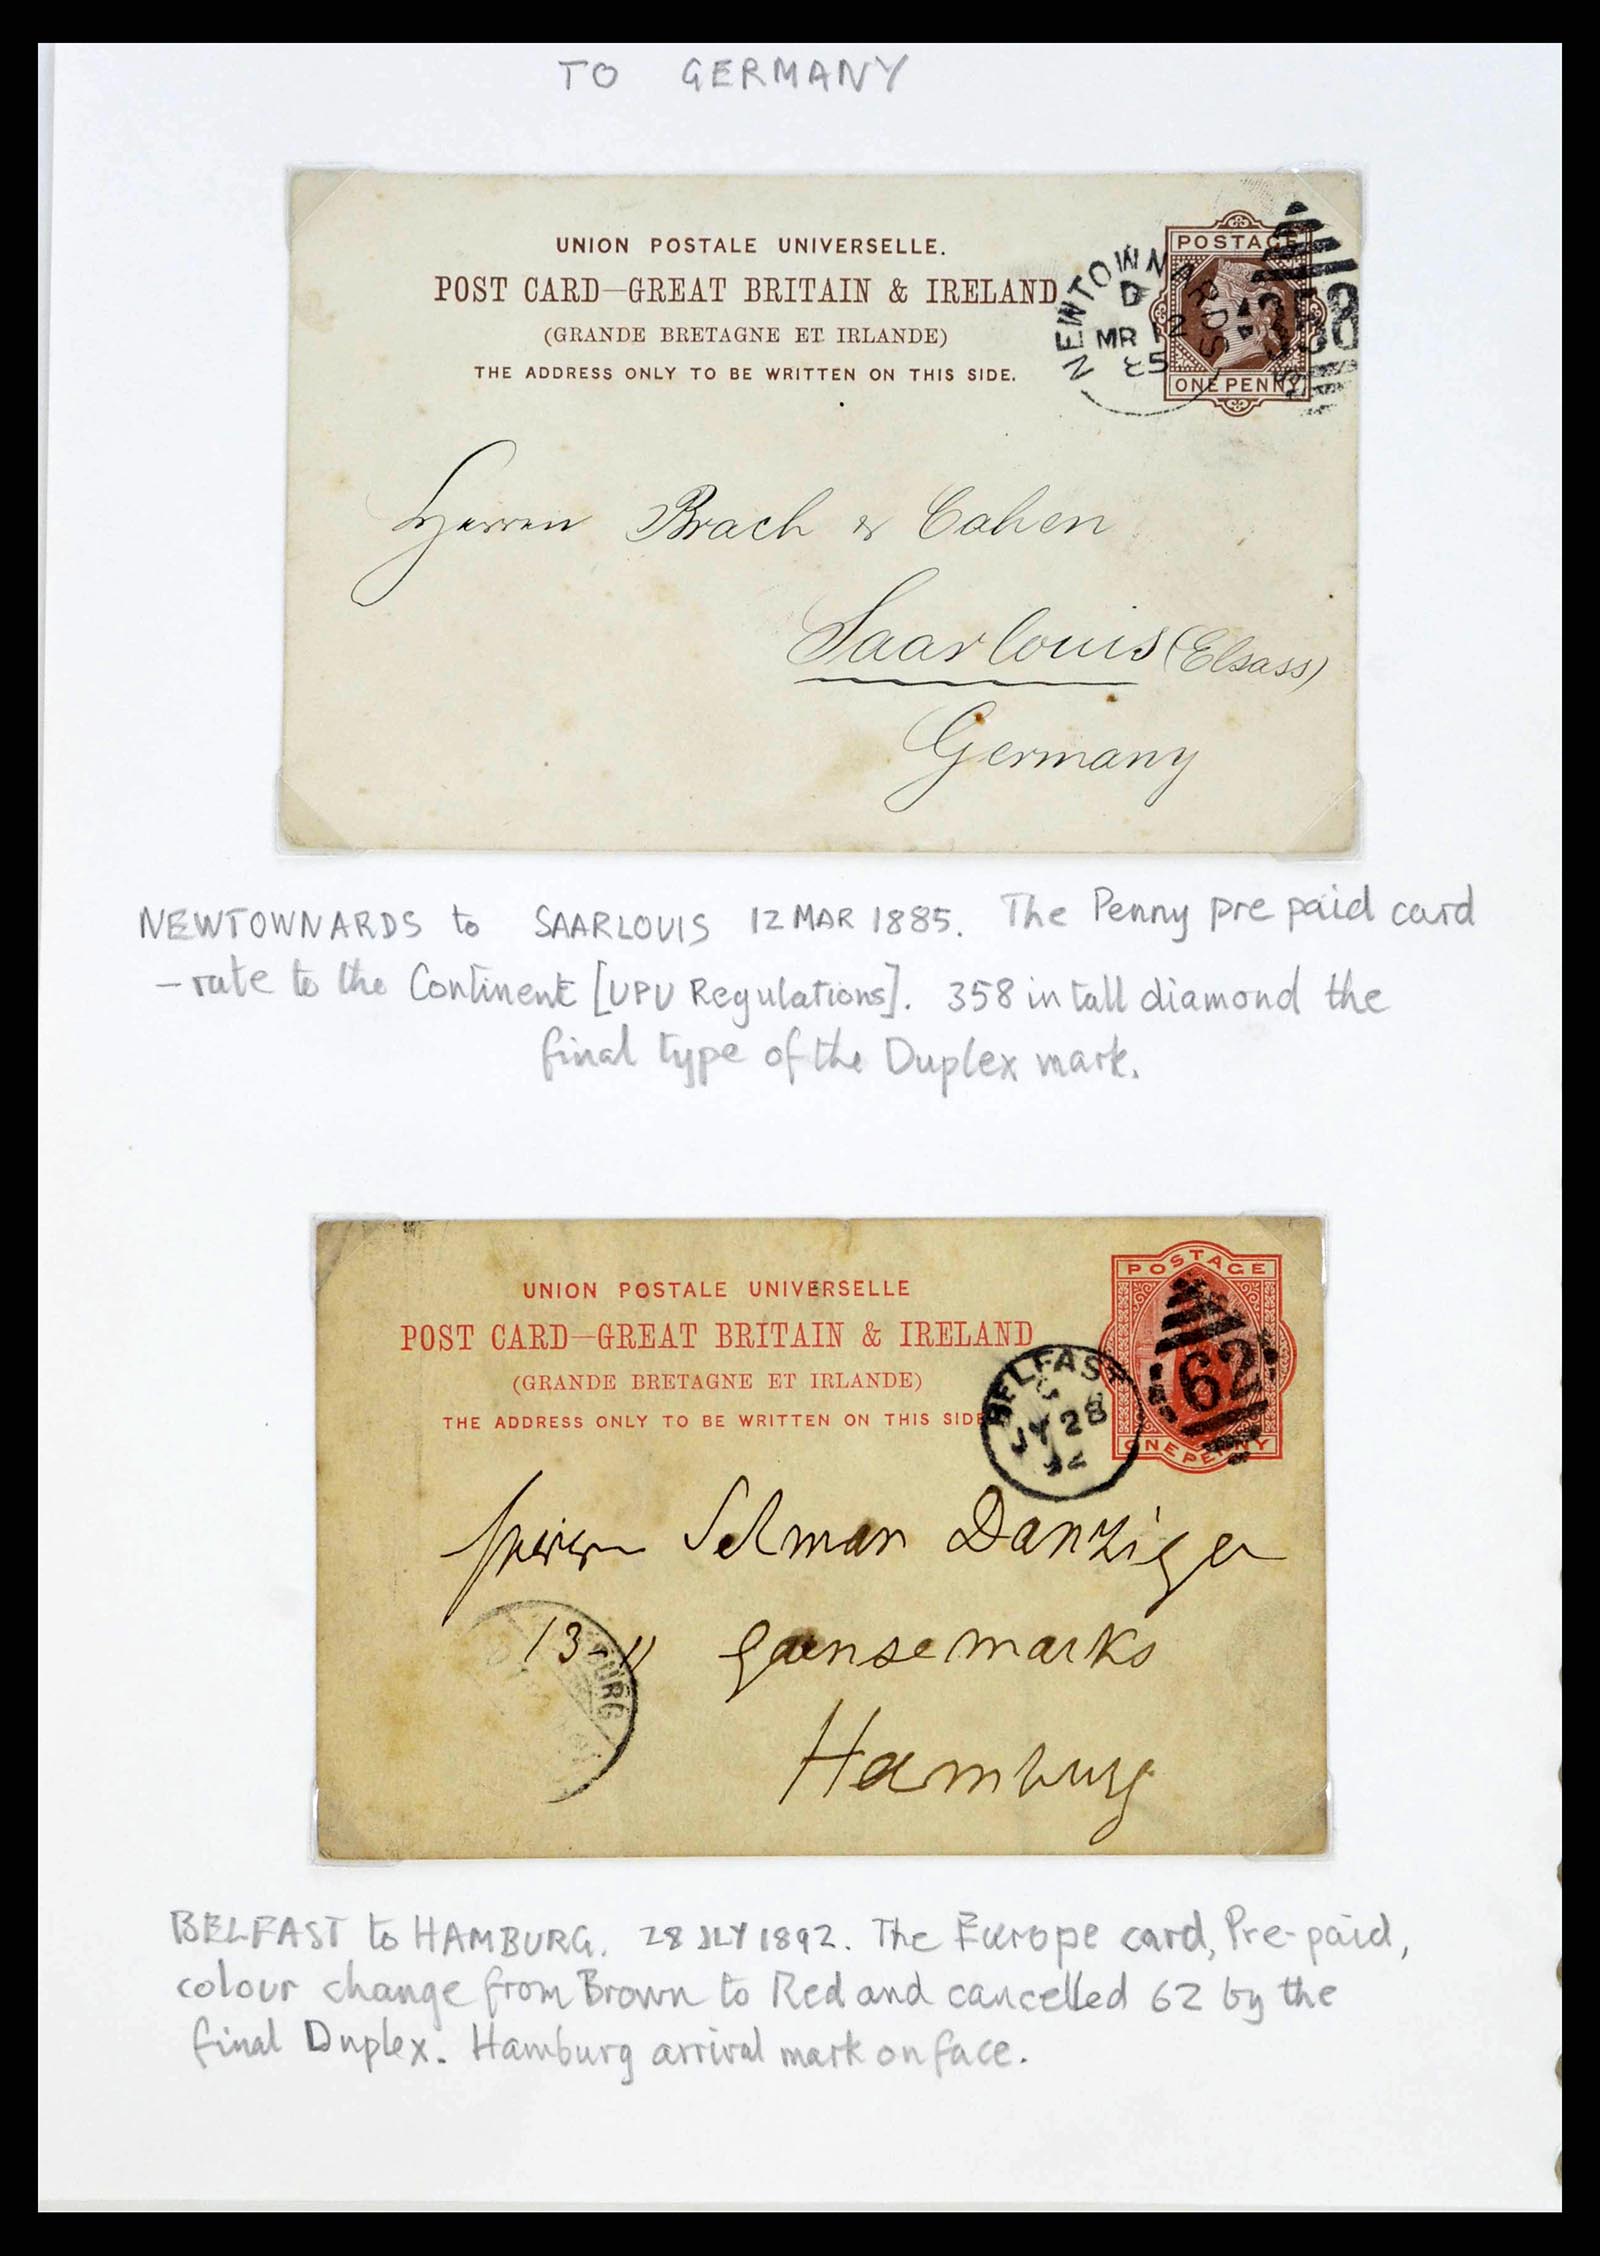 TO GERMANY
UNION POSTALE UNIVERSELLE.
POST CARD—GREAT BRITAIN & IRELAND
(GRANDE BRETAGNE ET IRLANDE)
THE ADDRESS ONLY TO BE WRITTEN ON THIS SIDE.
NEWTOWNARDS
D
MR 12
85
POSTAGE
358
ONE PENNY
Herren Brach & Cahen
Saarlouis (Elsass)
Germany
NEWTOWNARDS to SAARLOUIS 12 MAR 1885. The Penny pre paid card
- rate to the Continent [UPU Regulations]. 358 in tall diamond the
final type of the Duplex mark.
UNION POSTALE UNIVERSELLE
POST CARD—GREAT BRITAIN & IRELAND
(GRANDE BRETAGNE ET IRLANDE)
THE ADDRESS ONLY TO BE WRITTEN ON THIS SIDE
BELFAST
JY 28
92
POSTAGE
62
ONE PENNY
Herrn Selmar Danziger
13-11 Gansemarks
Hamburg
BELFAST to HAMBURG. 28 JLY 1892. The Europe card, Pre-paid,
colour change from Brown to Red and cancelled 62 by the
final Duplex. Hamburg arrival mark on face.